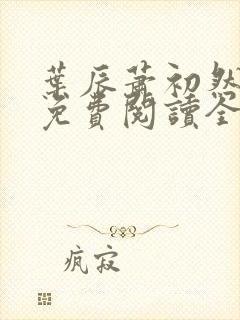 葉辰蕭初然
免費閱讀全
疯寂